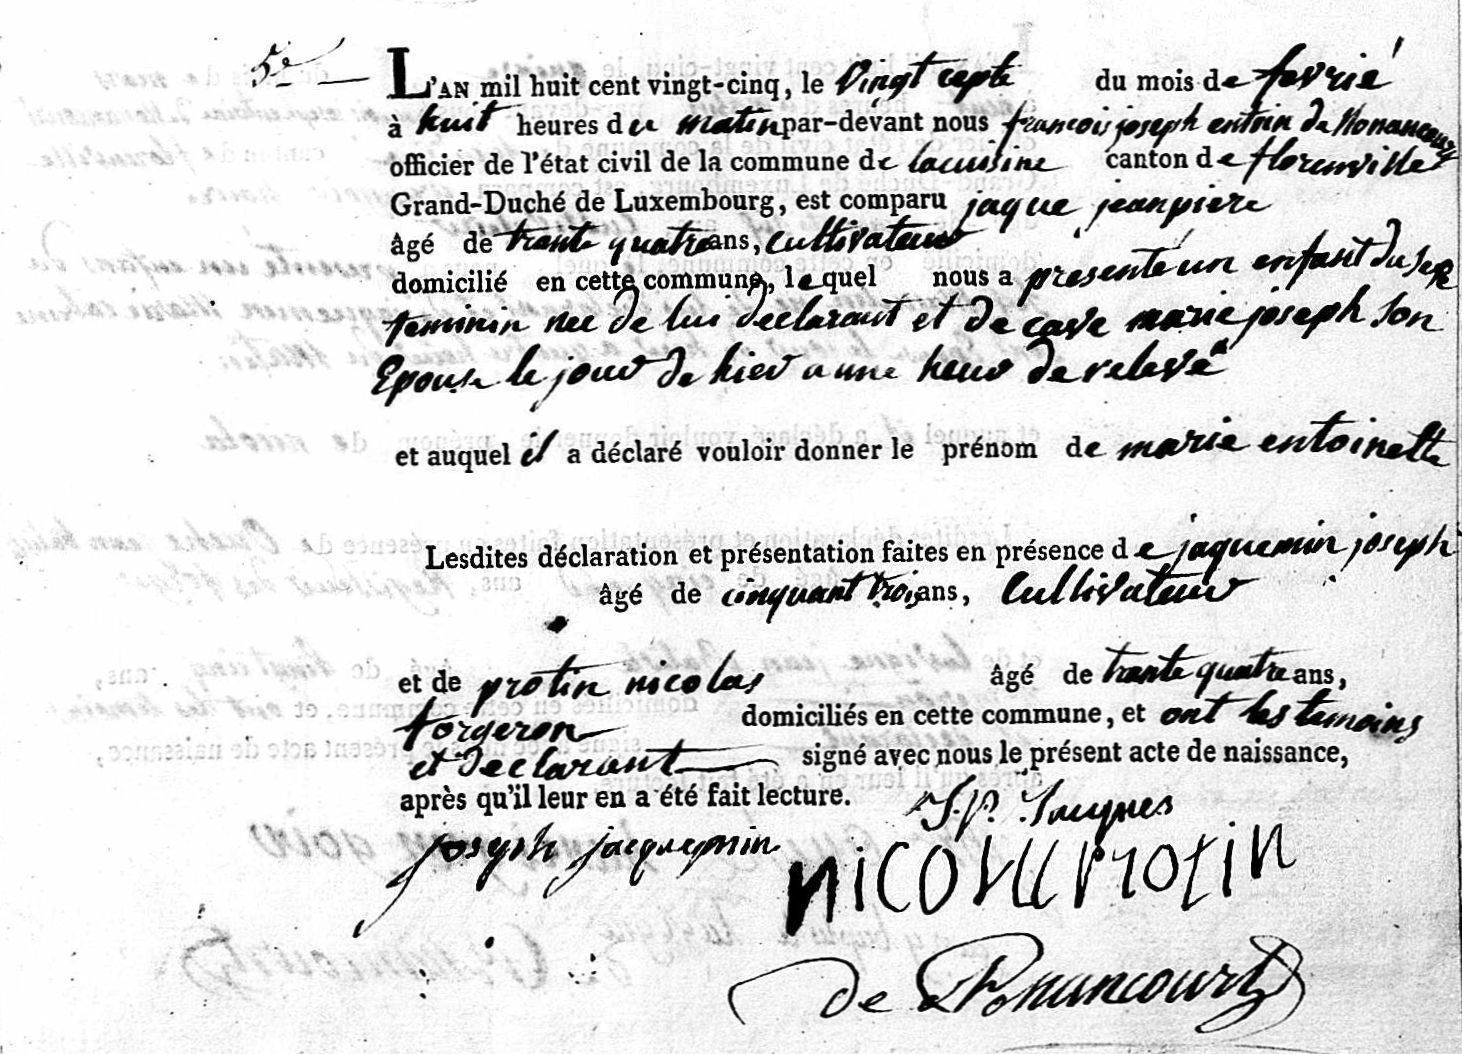 5e
L'AN mil huit cent vingt-cinq, le Vingt cepte du mois de fevrié
à huit heures du matin par-devant nous francois joseph entoin de
officier de l'état civil de la commune de lacuisine canton de florenville
Grand-Duché de Luxembourg, est comparu jaque jeanpiere
âgé de trante quatre ans, cultivateur
domicilié en cette commune, lequel nous a présenté un enfant du sex
feminin nee de lui declarant et de cave marie joseph son
Epouse le jour de hier a une heur de relevé
et auquel il a déclaré vouloir donner le prénom de marie entoinette
Lesdites déclaration et présentation faites en présence de jaquemin joseph
âgé de cinquant trois ans, cultivateur
et de protin nicolas âgé de trante quatre ans,
forgeron domiciliés en cette commune, et ont les temoins
et declarant signé avec nous le présent acte de naissance,
après qu'il leur en a été fait lecture. J.P. Jacques
joseph jacquemin
protin
de